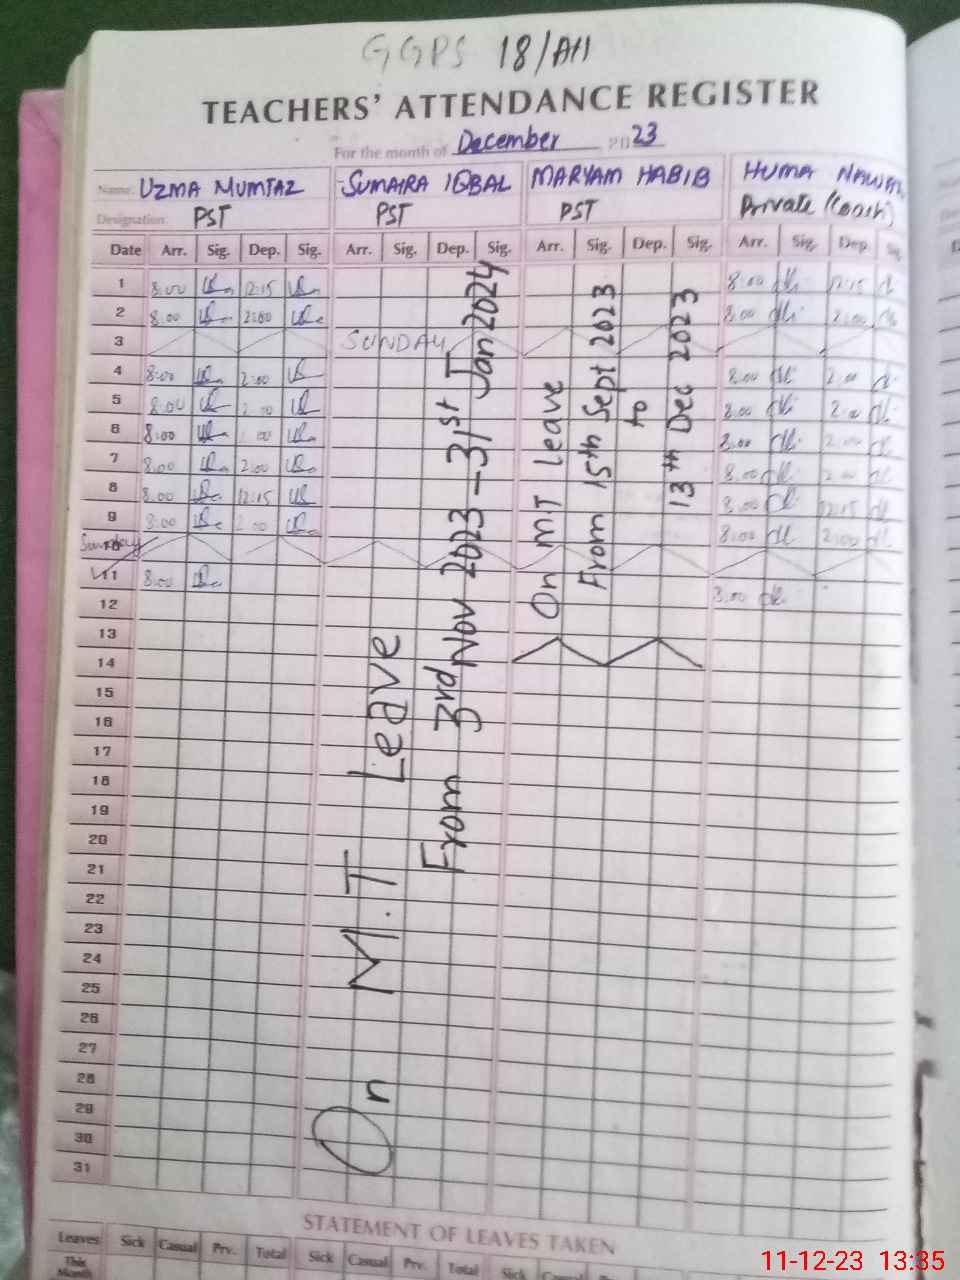 GGPS 18/AH
TEACHERS' ATTENDANCE REGISTER
For the month of December 2023
Name: UZMA MUMTAZ SUMAIRA IQBAL MARYAM HABIB HUMA
Designation: PST PST PST Private (Coach)
Date Arr. Sig. Dep. Sig. Arr. Sig. Dep. Sig. Arr. Sig. Dep. Sig. Arr. Sig. Dep. Sig.
1 8:00 12:15 8:00 12:15
2 8:00 2:00 8:00 2:00
3 SUNDAY
4 8:00 2:00 8:00 2:00
5 8:00 2:00 8:00 2:00
6 8:00 8:00 2:00
7 8:00 2:00 8:00 2:00
8 8:00 12:15 8:00 12:15
9 8:00 2:00 8:00 2:00
Sunday 10
11 8:00 8:00
12
13
14
15
16
17
18
19
20
21
22
23
24
25
26
27
28
29
30
31
On M.T Leave
From 3rd Nov 2023 - 31st Jan 2024
On M.T Leave
From 15th Sept 2023
to
13th Dec 2023
STATEMENT OF LEAVES TAKEN
Leaves Sick Casual Prv. Total Sick Casual Prv. Total Sick Casual
This Month
11-12-23 13:35